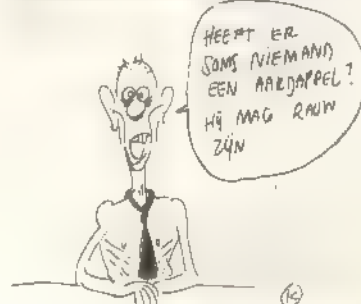 HEEFT ER
SOMS NIEMAND
EEN AARDAPPEL?
HIJ MAG RAUW
ZIJN